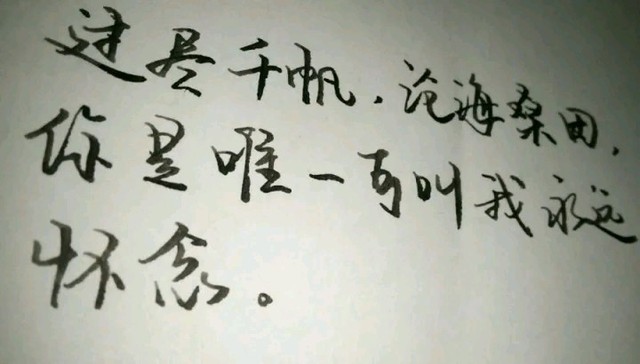 过尽千帆，沧海桑田，
你是唯一可叫我永远
怀念。